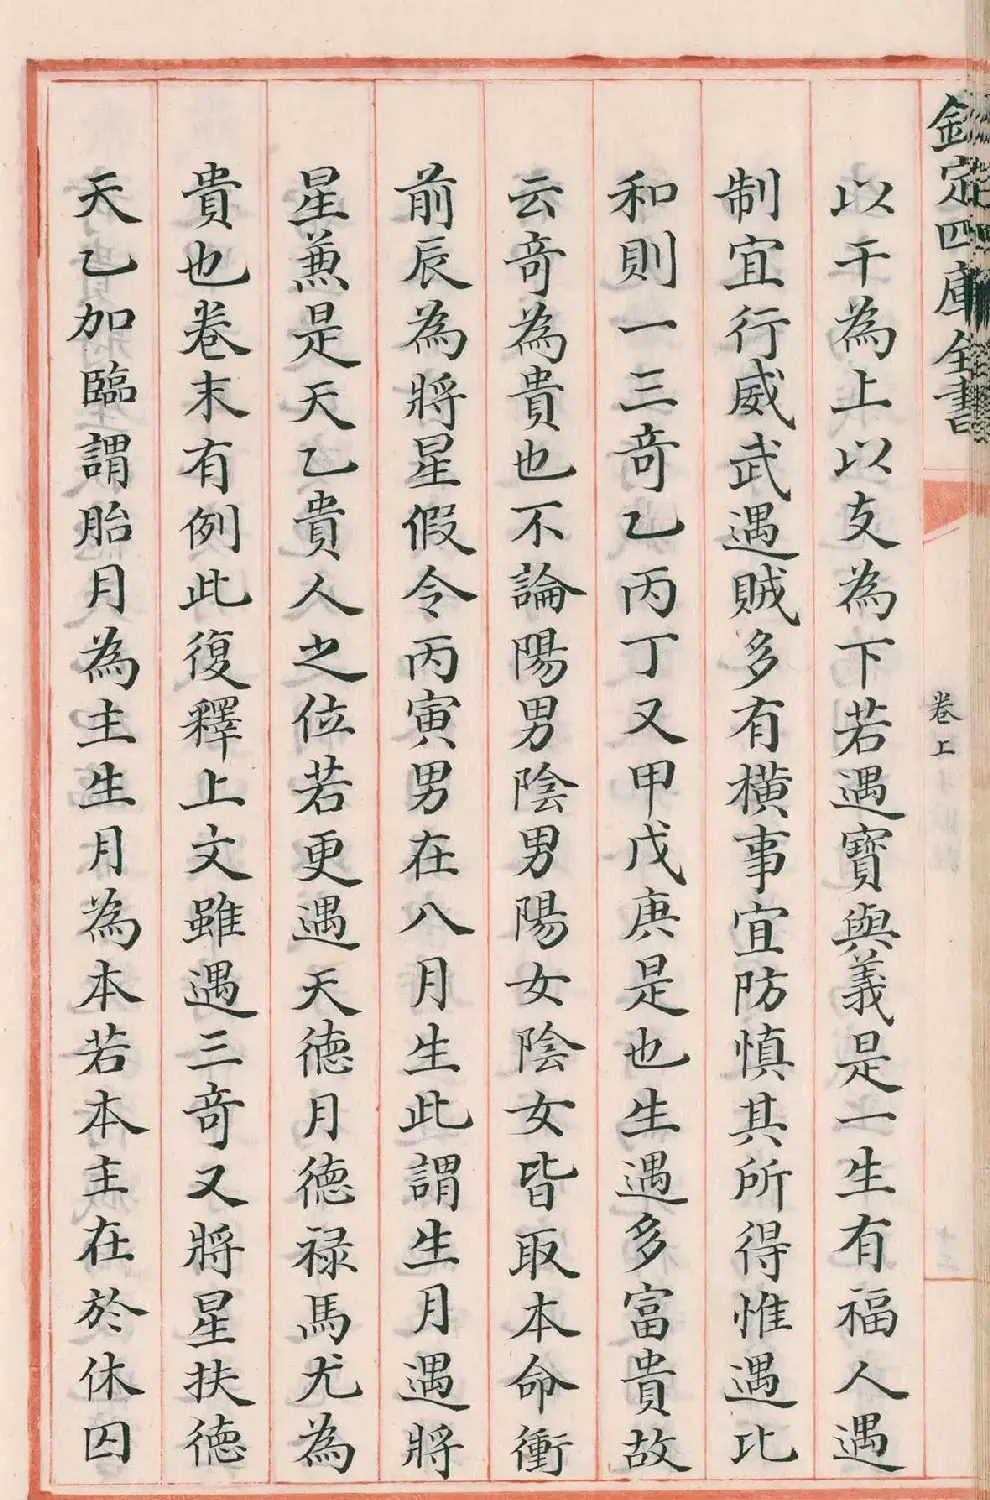 欽定四庫全書
卷上
以干為上以支為下若遇寳與義是一生有福人遇
制宜行威武遇賊多有橫事宜防慎其所得惟遇比
和則一三竒乙丙丁又甲戊庚是也生遇多富貴故
云竒為貴也不論陽男陰男陽女陰女皆取本命衝
前辰為將星假令丙寅男在八月生此謂生月遇將
星兼是天乙貴人之位若更遇天德月德禄馬尤為
貴也卷末有例此復釋上文雖遇三竒又將星扶德
天乙加臨謂胎月為主生月為本若本主在於休囚